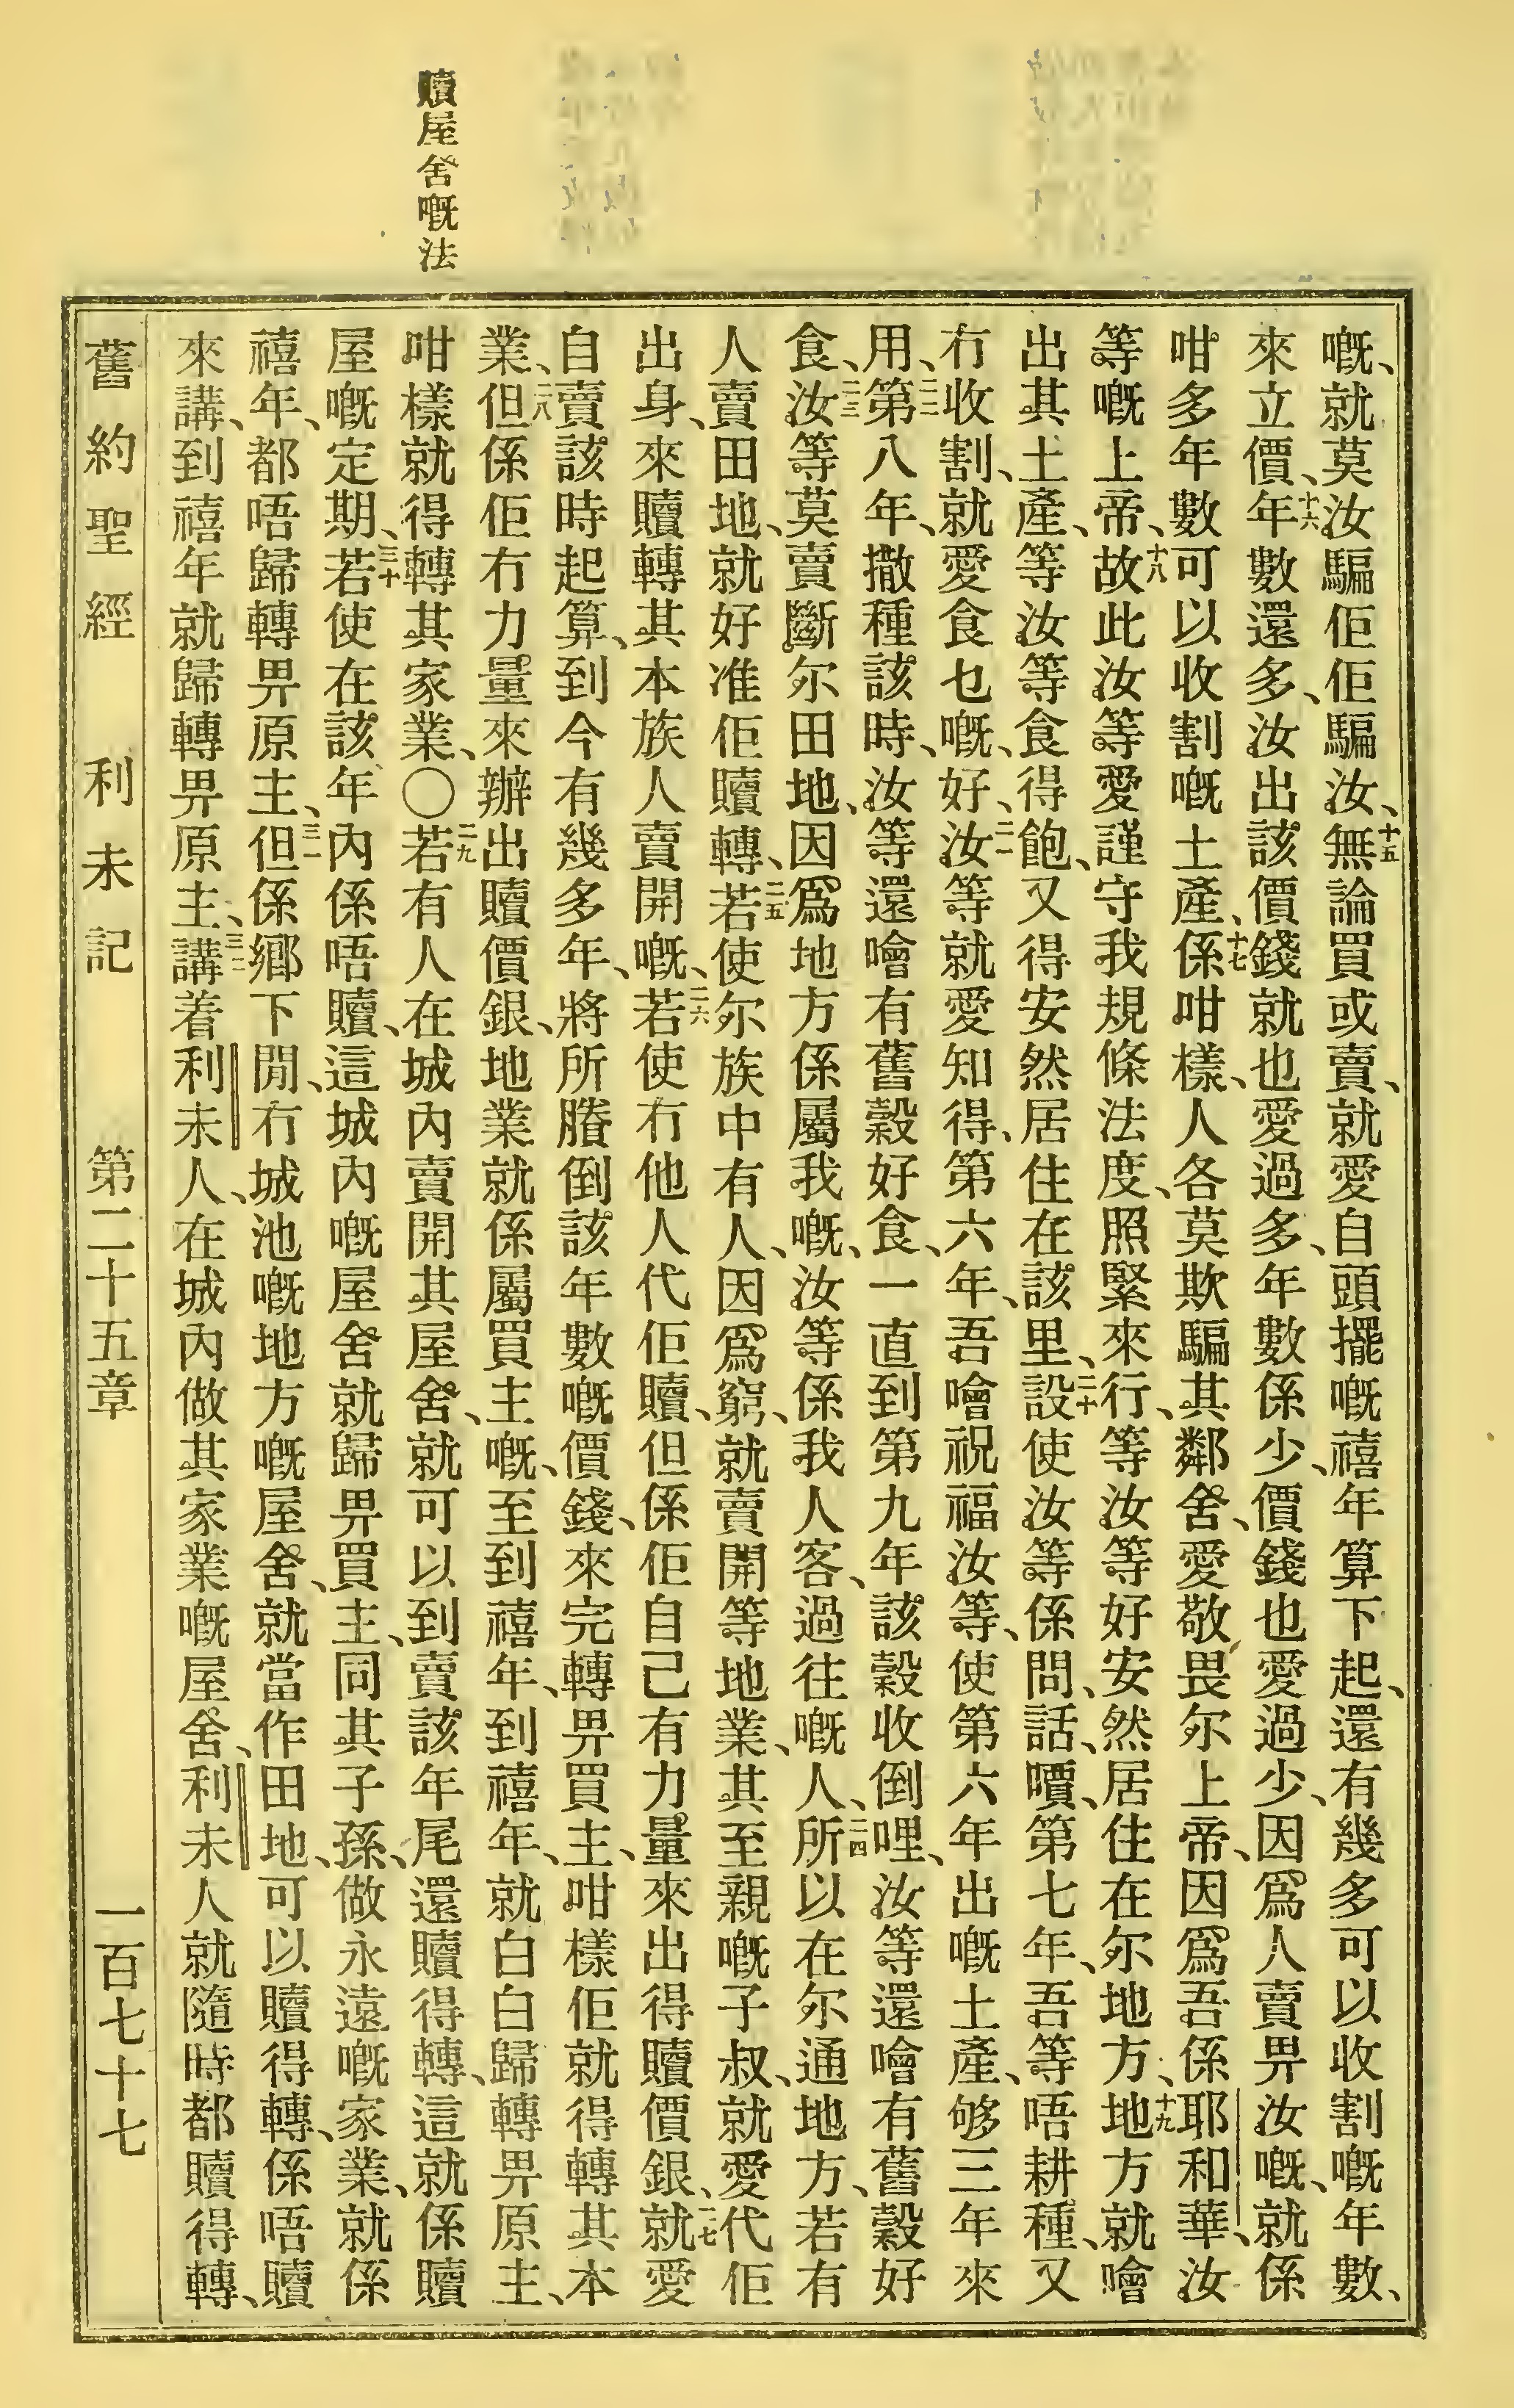 贖屋舍嘅法
嘅、就莫汝騙佢佢騙汝、十五無論買或賣、就愛自頭擺嘅禧年算下起、還有幾多可以收割嘅年數、
來立價、十六年數還多、汝出該價錢就也愛過多、年數係少、價錢也愛過少、因爲人賣畀汝嘅、就係
咁多年數可以收割嘅土產、十七係咁樣、人各莫欺騙其鄰舍、愛敬畏尔上帝、因爲吾係耶和華、汝
等嘅上帝、十八故此汝等愛謹守我規條法度、照緊來行、等汝等好安然居住在尔地方、十九地方就噲
出其土產、等汝等食得飽、又得安然居住在該里、二十設使汝等係問話、嘳、第七年、吾等唔耕種、又
冇收割、就愛食乜嘅、好、二一汝等就愛知得、第六年、吾噲祝福汝等、使第六年出嘅土產、够三年來
用、二二第八年、撒種該時、汝等還噲有舊穀好食、一直到第九年該穀收倒哩、汝等還噲有舊穀好
食、二三汝等莫賣斷尔田地、因爲地方係屬我嘅、汝等係我人客、過往嘅人、二四所以在尔通地方、若有
人賣田地、就好准佢贖轉、二五若使尔族中有人、因爲窮、就賣開等地業、其至親嘅子叔、就愛代佢
出身、來贖轉其本族人賣開嘅、二六若使冇他人代佢贖、但係佢自己有力量來出得贖價銀、二七就愛
自賣該時起算、到今有幾多年、將所賸倒該年數嘅價錢、來完轉畀買主、咁樣佢就得轉其本
業、二八但係佢冇力量來辦出贖價銀、地業就係屬買主嘅、至到禧年、到禧年、就白白歸轉畀原主、
咁樣就得轉其家業、〇二九若有人在城內賣開其屋舍、就可以到賣該年尾還贖得轉、這就係贖
屋嘅定期、三十若使在該年內係唔贖、這城內嘅屋舍就歸畀買主、同其子孫、做永遠嘅家業、就係
禧年、都唔歸轉畀原主、三一但係鄉下閒、冇城池嘅地方嘅屋舍、就當作田地、可以贖得轉、係唔贖
來講、到禧年就歸轉畀原主、三二講着利未人、在城內做其家業嘅屋舍、利未人就隨時都贖得轉、
舊約聖經 利未記 第二十五章 一百七十七